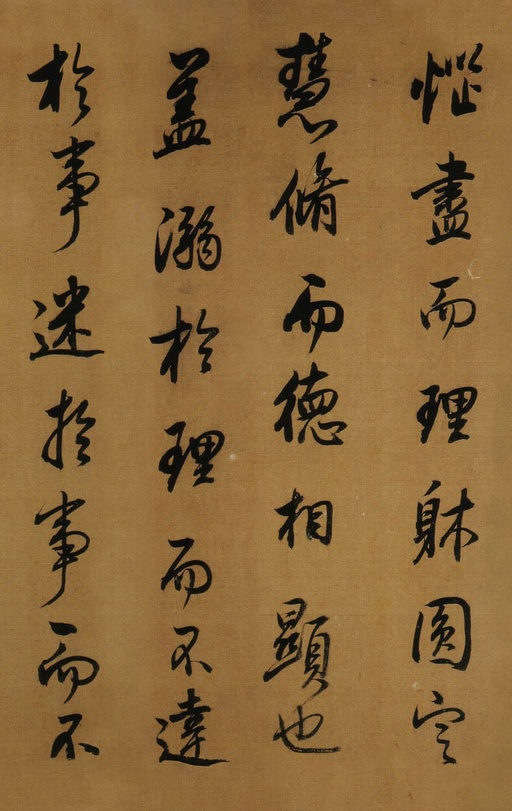 惱盡而理躰圓定
慧脩而德相顯也
蓋溺於理而不達
於事迷於事而不